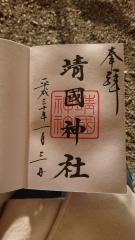 奉拝
靖國神社
靖國神社
平成三十年一月三日